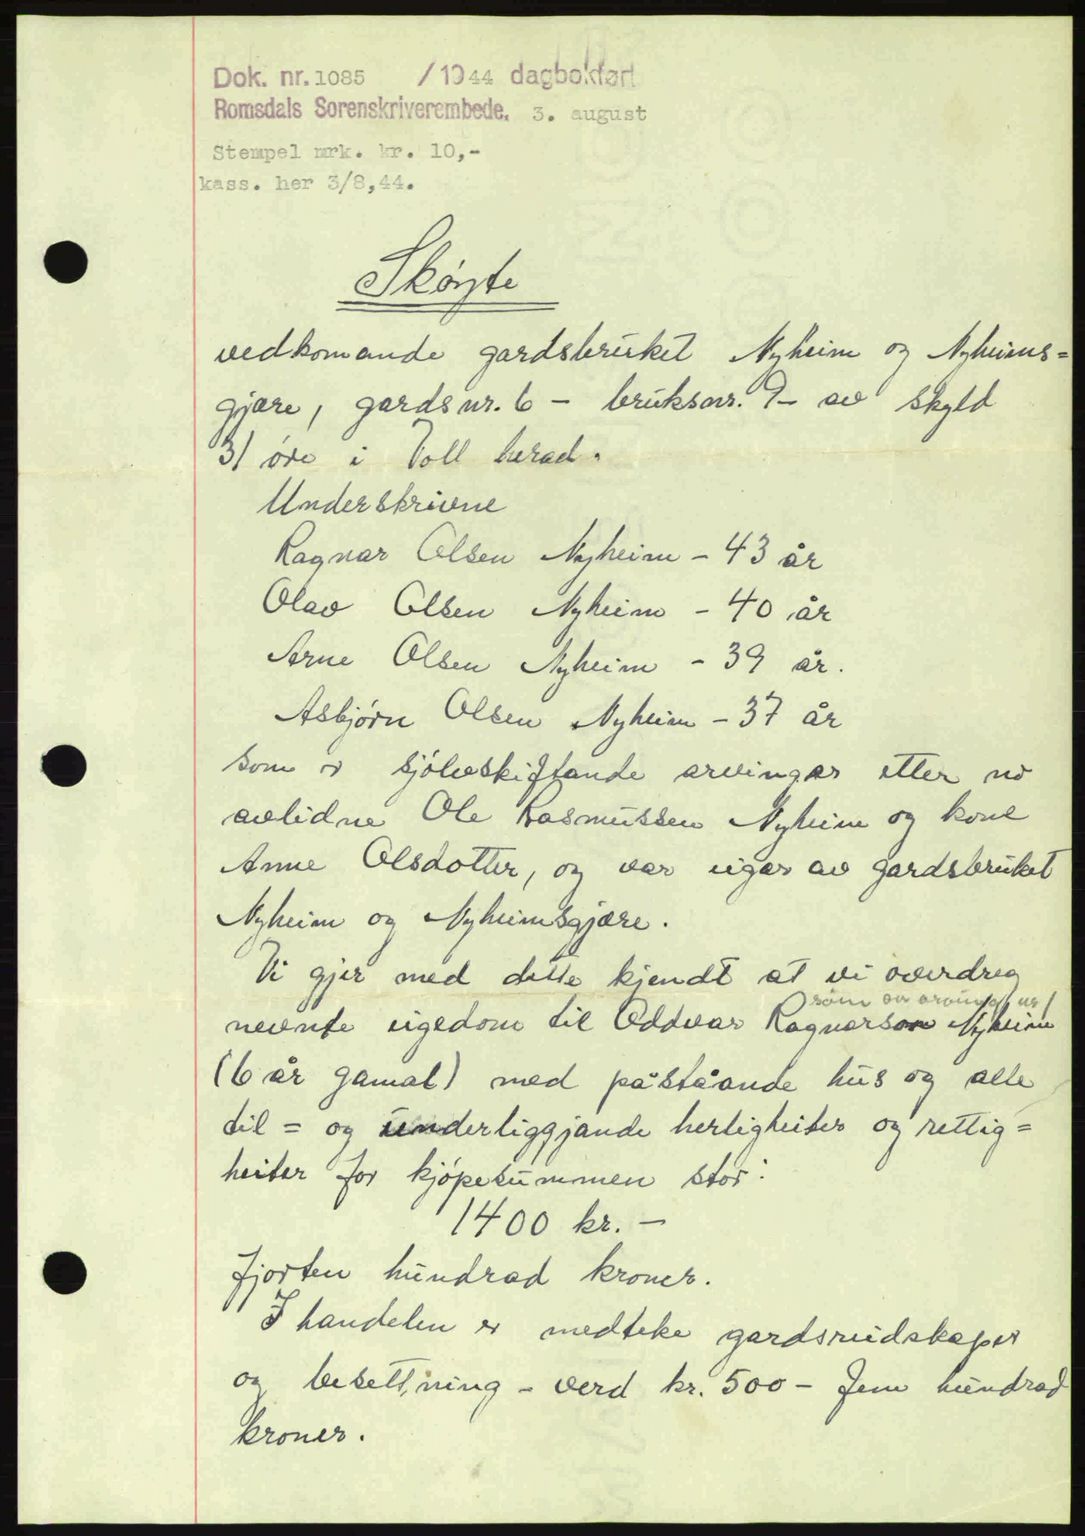 Dok. nr. 1085 /1944 dagbokført
Romsdals Sorenskriverembede. 3. august
Stempel mrk. kr. 10,-
kass. her 3/8,44.
Skøyte
vedkomande gardsbruket Nyheim og Nyheims=
gjære, gards nr. 6 - bruksnr. 9- av skyld
31 øre i Voll herad.
Underskrivne
Ragnar Olsen Nyheim - 43 år
Olav Olsen Nyheim - 40 år
Arne Olsen Nyheim - 39 år.
Asbjørn Olsen Nyheim - 37 år
som er sjølvskiftande arvingar etter no
avlidne Ole Rasmussen Nyheim og kone
Anne Olsdotter, og var eigar av gardsbruket
Nyheim og Nyheimsgjære.
Vi gjer med dette kjendt at vi overdreg
som er arving
nevnte eigedom til Oddvar Ragnarson Nyheim
(6 år gamal) med påståande hus og alle
til= og underliggjande herligheiter og rettig=
heiter for kjøpesummen stor:
1400 kr. -
fjorten hundrad kroner.
I handelen er medteke gardsreidskaper
og besettning - verd kr. 500 - fem hundrad
kroner.